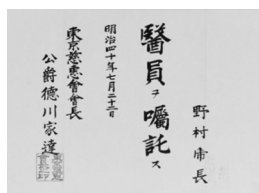 野村庸長
醫員ヲ囑託ス
明治四十年七月二十二日
東京慈惠會會長
公爵德川家達